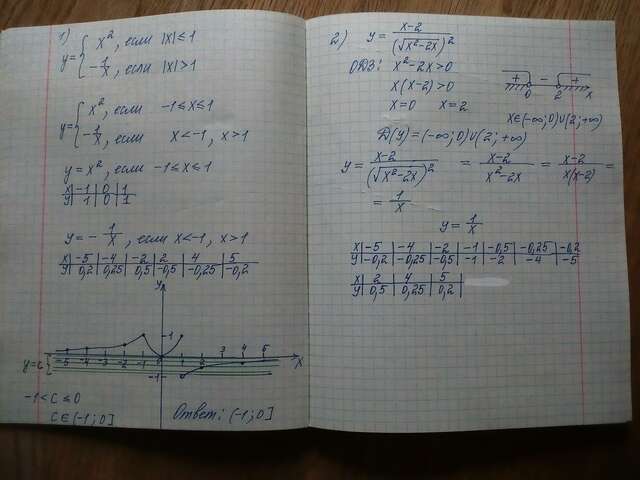 1) y = { x², если |x| ≤ 1
-1/x, если |x| > 1
y = { x², если -1 ≤ x ≤ 1
-1/x, если x < -1, x > 1
y = x², если -1 ≤ x ≤ 1
x | -1 | 0 | 1
y | 1 | 0 | 1
y = - 1/x, если x < -1, x > 1
x | -5 | -4 | -2 | 2 | 4 | 5
y | 0,2 | 0,25 | 0,5 | -0,5 | -0,25 | -0,2
y
1
-5 -4 -3 -2 -1 0 1 2 3 4 5 x
y=c
-1
-1 < c ≤ 0
c ∈ (-1; 0]
Ответ: (-1; 0]
2) y = x-2/(√x²-2x)²
ОДЗ: x²-2x > 0
x(x-2) > 0
x = 0 x = 2
+ - +
0 2 x
x ∈ (-∞; 0) ∪ (2; +∞)
D(y) = (-∞; 0) ∪ (2; +∞)
y = x-2/(√x²-2x)² = x-2/x²-2x = x-2/x(x-2) =
= 1/x
y = 1/x
x | -5 | -4 | -2 | -1 | -0,5 | -0,25 | -0,2
y | -0,2 | -0,25 | -0,5 | -1 | -2 | -4 | -5
x | 2 | 4 | 5
y | 0,5 | 0,25 | 0,2